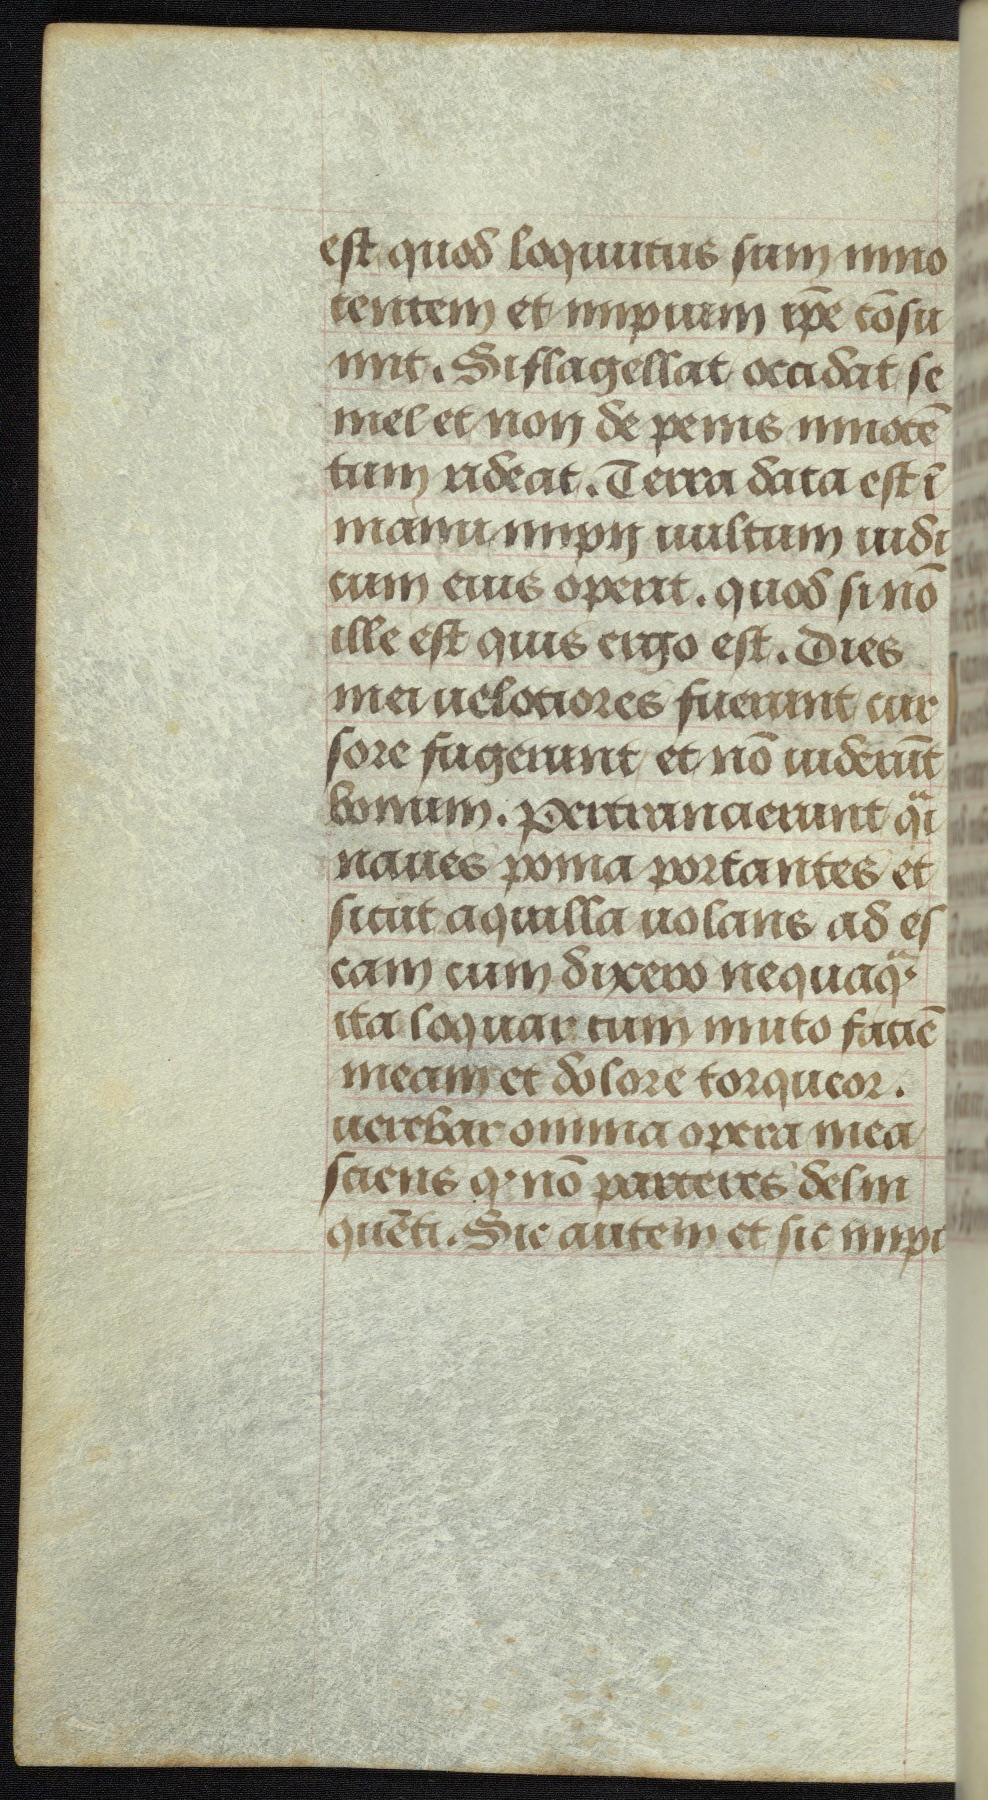 est quod loquutus sum inno
centem et impium ip̄e cōsu
mit. Si flagellat occidat se
mel et non de penis innocē
tum rideat. Terra data est ī
manu impij uultum iudi
cum eius operit. quod si nō
ille est quis ergo est. Dies
mei uelociores fuerunt cur
sore fugerunt et nō uiderūt
bonum. Pertrancierunt qͣi
naues poma portantes et
sicut aquilla uolans ad es
cam cum dixero nequaqͣ
ita loquar cum muto faciē
meam et dolore torqueor.
uerebar omnia opera mea
sciens q nō parceres delin
quēti. Sic autem et sic impi